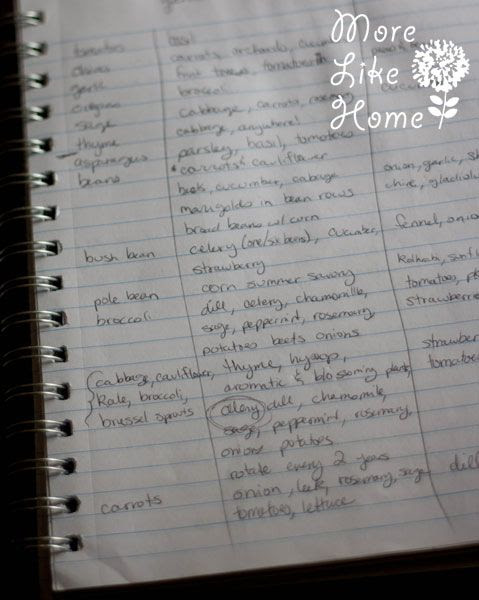 More
Like
Home
tomatoes basil
chives carrots, orchards,
garlic fruit trees, tomatoes
oregano broccoli
sage cabbage, carrots, rosemary
thyme cabbage, anywhere!
asparagus parsley, basil, tomatoes
beans carrots & cauliflower onion, garlic,
beets, cucumber, cabbage chive,
marigolds in bean rows
broad beans w/ corn
bush bean celery (one/six beans), cucumber, fennel,
strawberry
pole bean corn summer savory
broccoli dill, celery, chamomille, tomatoes,
sage, peppermint, rosemary,
potatoes beets onions
cabbage, cauliflower, thyme, hyssop,
Kale, broccoli, aromatic & blossoming plants,
brussel sprouts celery, dill, chamomile,
sage, peppermint, rosemary,
onions potatoes
rotate every 2 years
carrots onion, leek, rosemary, sage dill
tomatoes, lettuce